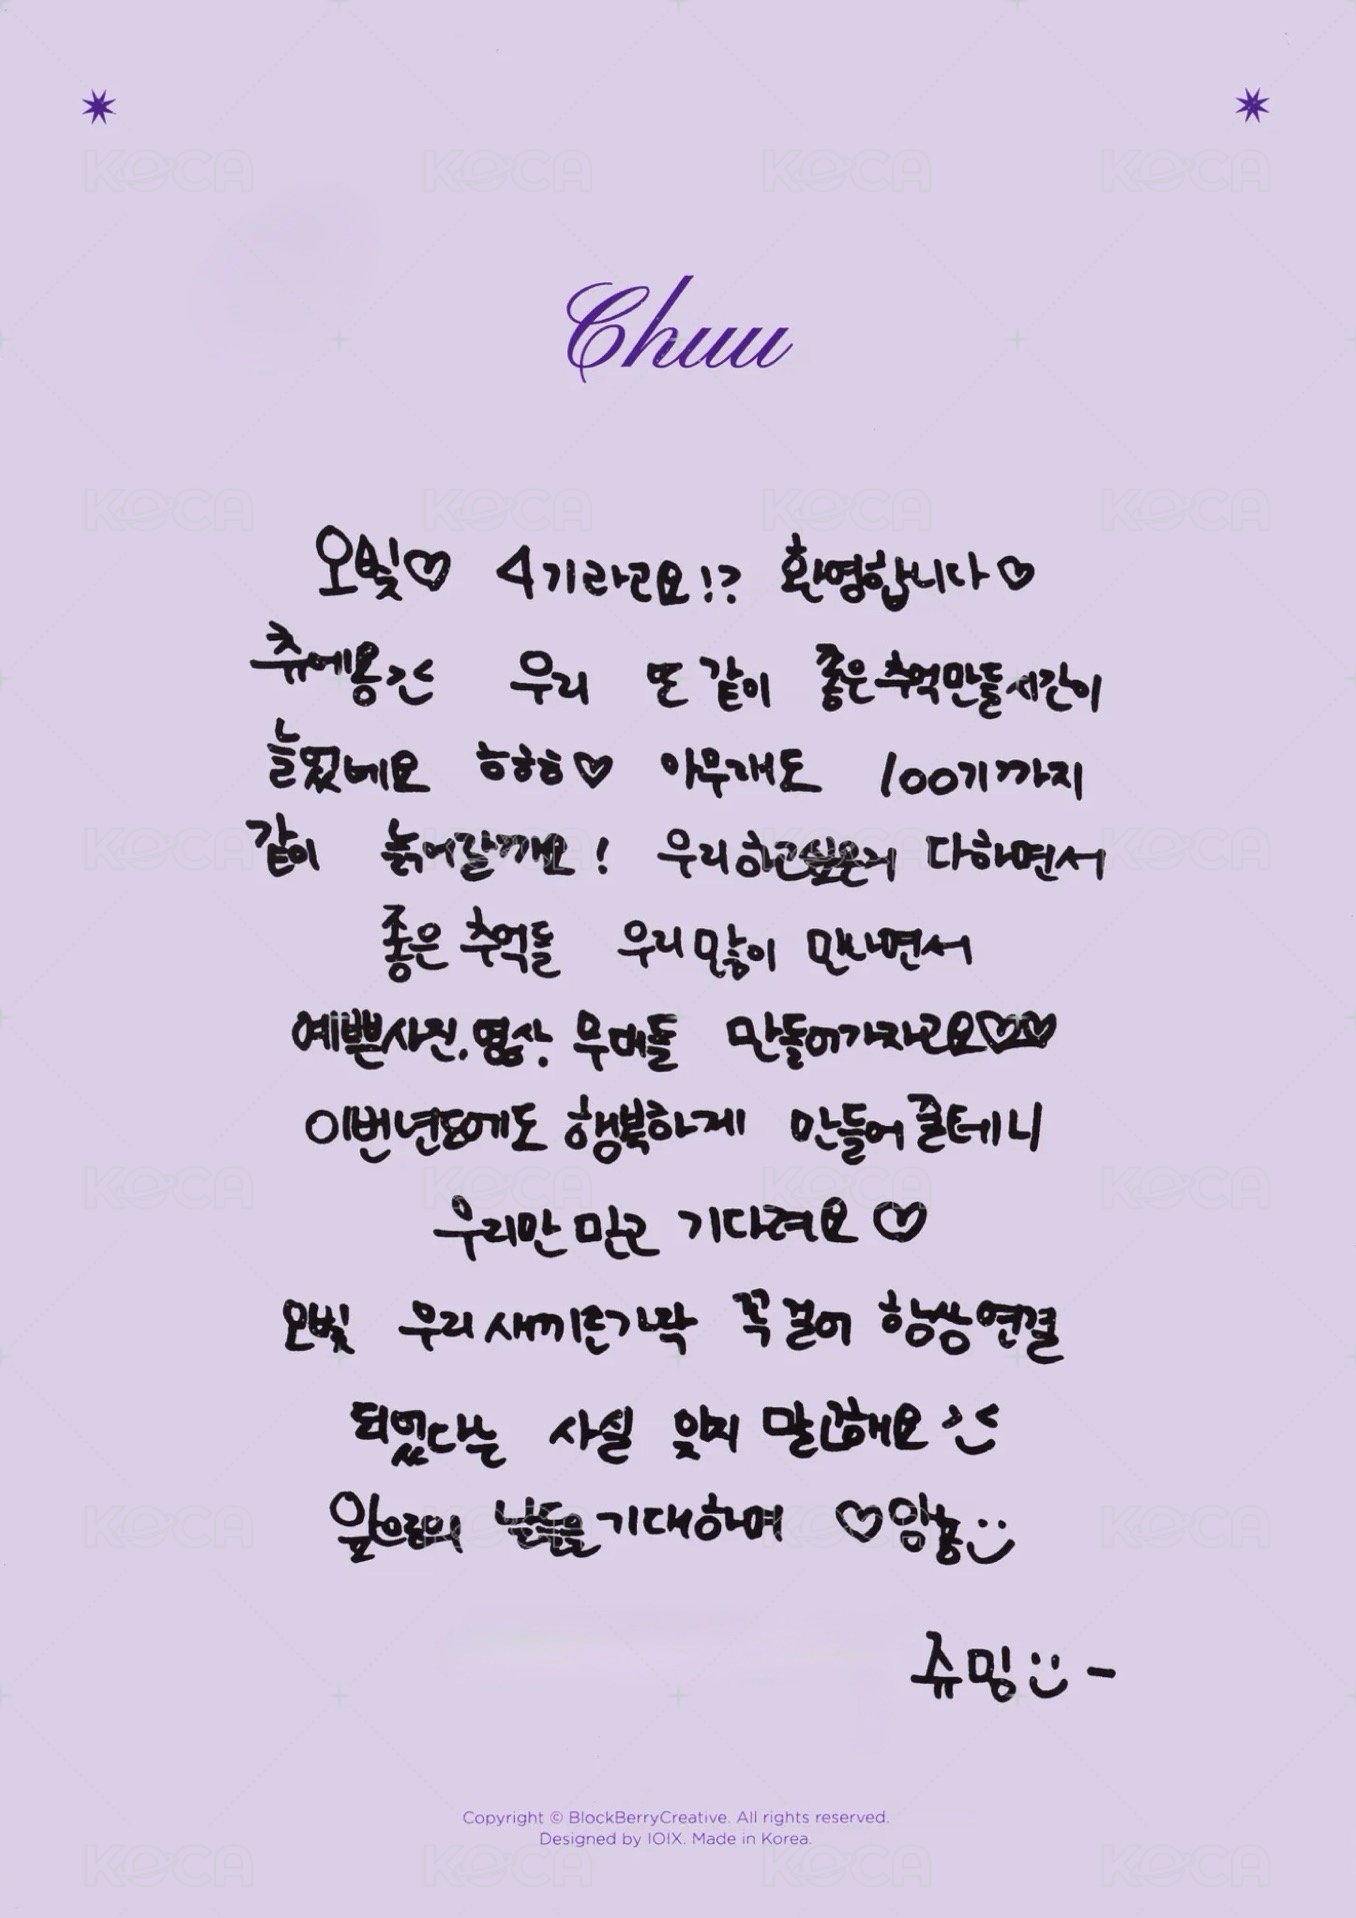 Chuu
오빛♡ 4기라고요!? 환영합니다♡
츄에용 우리 또 같이 좋은 추억만들시간이
늘었네요 ㅎㅎㅎ♡ 아무래도 100기까지
같이 늙어갈까봐요! 우리하고싶은거 다하면서
좋은 추억들 우리 많이 만나면서
예쁜사진, 영상, 무대들 만들어가자고요♡♡
이번년도에도 행복하게 만들어 줄테니
우리만 믿고 기다려요♡
오빛 우리 새끼손가락 꼭 걸어 항상 연결
되었다는 사실 잊지 말고해요
앞으로의 날들을 기대하며 ♡
츄밍 -
Copyright © BlockBerryCreative. All rights reserved.
Designed by IOIX. Made in Korea.